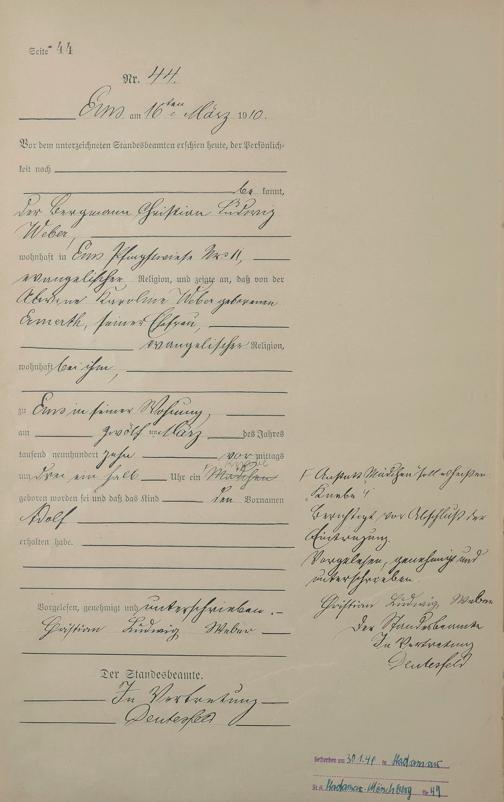 Seite 44
Nr. 44.
Ems am 16ten März 1910.
Vor dem unterzeichneten Standesbeamten erschien heute, der Persönlich-
keit nach
be kannt,
der Bergmann Christian Ludwig
Weber,
wohnhaft in Ems Pfingstwiese Nro 11,
evangelischer Religion, und zeigte an, daß von der
Karoline Weber geborenen
seiner Ehefrau,
evangelischer Religion,
wohnhaft bei ihm,
zu Ems in seiner Wohnung,
am zwölften März des Jahres
tausend neunhundert zehn vor mittags
um drei ein halb Uhr ein Mädchen
Knabe
geboren worden sei und daß das Kind den Vornamen
Adolf
erhalten habe.
Vorgelesen, genehmigt und unterschrieben.
Christian Ludwig Weber
Der Standesbeamte.
In Vertretung
Deutesfeld
Anstatt "Mädchen" soll es heißen
"Knabe"!
Berichtigt vor Abschluß der
Eintragung.
Vorgelesen, genehmigt und
unterschrieben.
Christian Ludwig Weber
Der Standesbeamte
In Vertretung
Deutesfeld
Gestorben am 30.1.41 in Hadamar
St.A. Hadamar-Mönchberg Nr 49